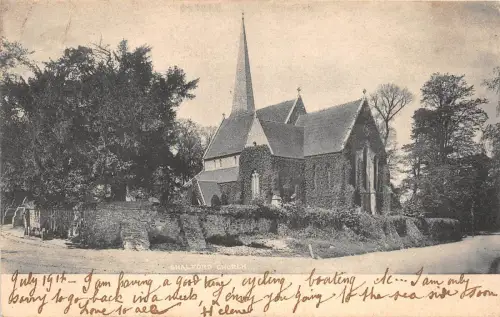 SHALFORD CHURCH
July 1911 - I am having a good time cycling boating etc... I am only
sorry to go back in a week, I envy you going to the sea side soon
Love to all. Helena